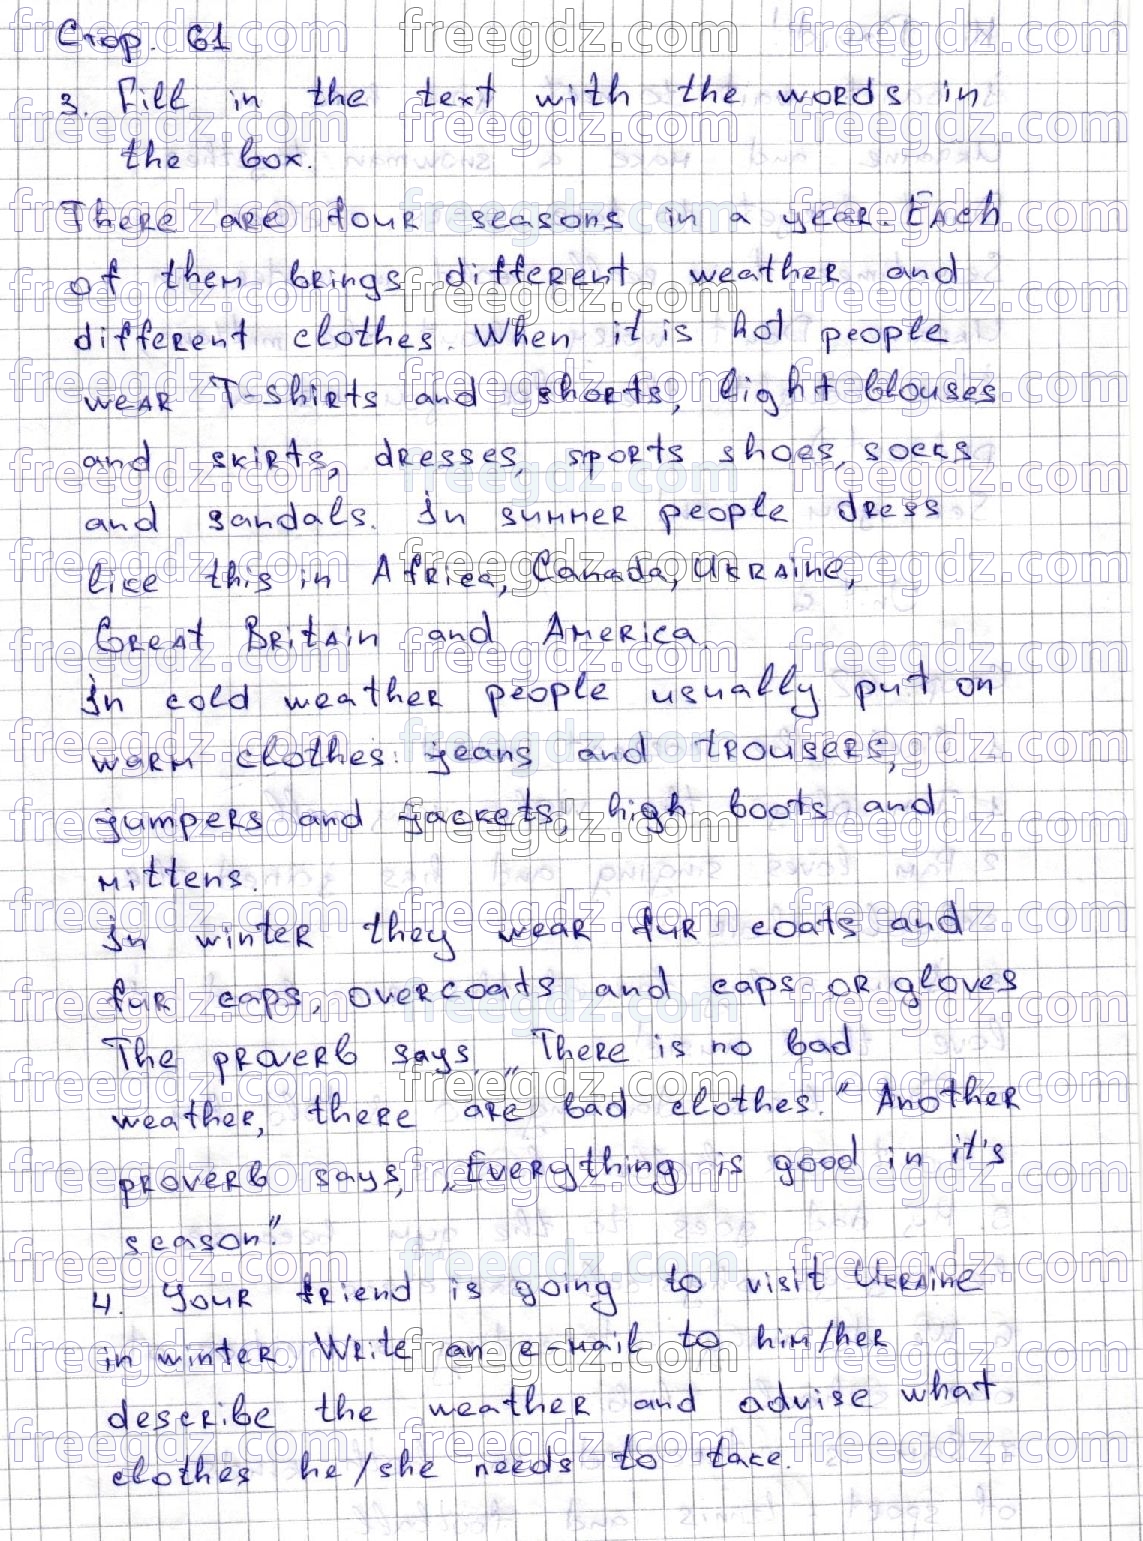 Стор. 61
3. Fill in the text with the words in
the box.
There are four seasons in a year. Each
of them brings different weather and
different clothes. When it is hot people
wear T-shirts and shorts, light blouses
and skirts, dresses, sports shoes, socks
and sandals. In summer people dress
like this in Africa, Canada, Ukraine,
Great Britain and America.
In cold weather people usually put on
warm clothes: jeans and trousers,
jumpers and jackets, high boots and
mittens.
In winter they wear fur coats and
fur caps, overcoats and caps or gloves
The proverb says, „There is no bad
weather, there are bad clothes." Another
proverb says, „Everything is good in it's
season".
4. Your friend is going to visit Ukraine
in winter Write an e-mail to him/her
describe the weather and advise what
clothes he/she needs to take.
freegdz.com